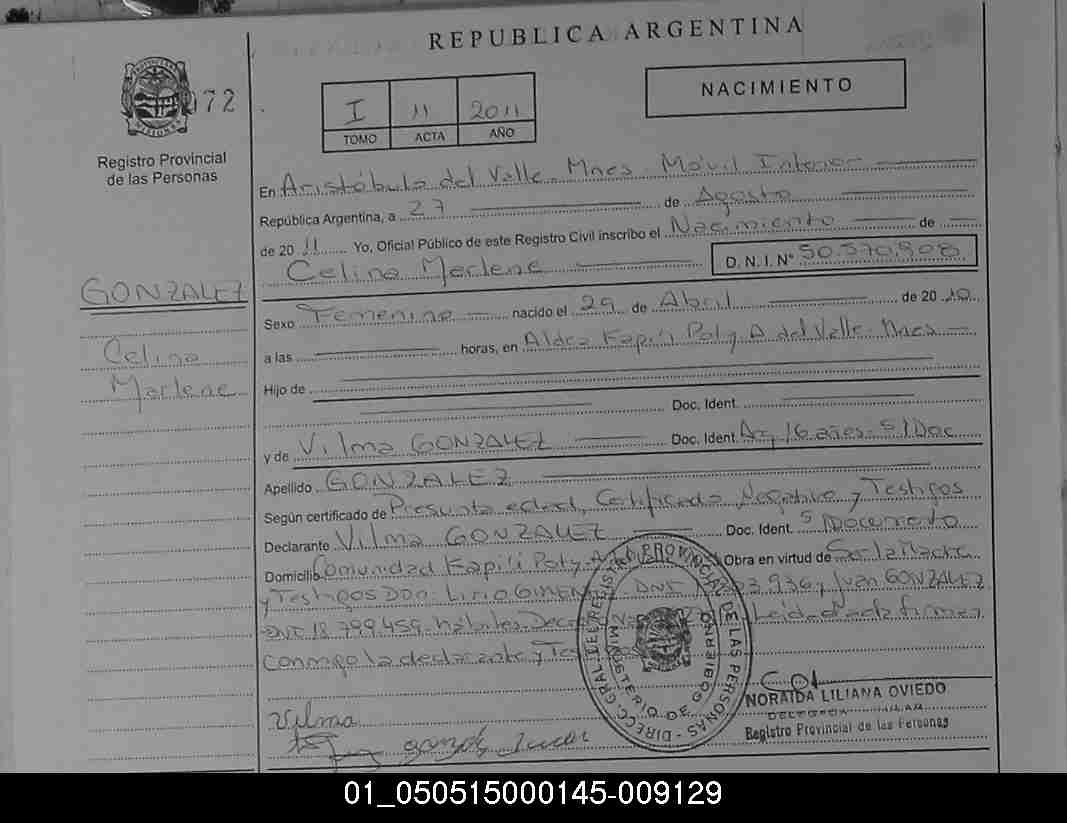 REPUBLICA ARGENTINA
PROVINCIA DE MISIONES
72
Registro Provincial
de las Personas
I 11 2011
TOMO ACTA AÑO
NACIMIENTO
En Aristóbulo del Valle Mnes Móvil Interior
República Argentina, a 27 de Agosto
de 2011 Yo, Oficial Público de este Registro Civil inscribo el Nacimiento de
Celina Marlene D.N.I. Nº 50.570.908
GONZALEZ
Celina
Marlene
Sexo Femenino nacido el 29 de Abril de 2010
a las horas, en Aldea Kapi'i Poty A del Valle. Mnes
Hijo de
Doc. Ident.
y de Vilma GONZALEZ Doc. Ident. Arg 16 años. S/Doc
Apellido GONZALEZ
Según certificado de Presunta edad, Certificado Negativo y Testigos
Declarante Vilma GONZALEZ Doc. Ident. S/Documento
Domicilio Comunidad Kapi'i Poty Obra en virtud de Ser la Madre
y Testigos Don: Lirio GIMENEZ DNI 936 y Juan GONZALEZ
DNI 18.799.459. habiles. Leida el acta firman
conmigo la declarante y
Vilma
DIRECC. GRAL. DEL REGISTRO PROVINCIAL DE LAS PERSONAS
MINISTERIO DE GOBIERNO
NORAIDA LILIANA OVIEDO
Registro Provincial de las Personas
01_050515000145-009129